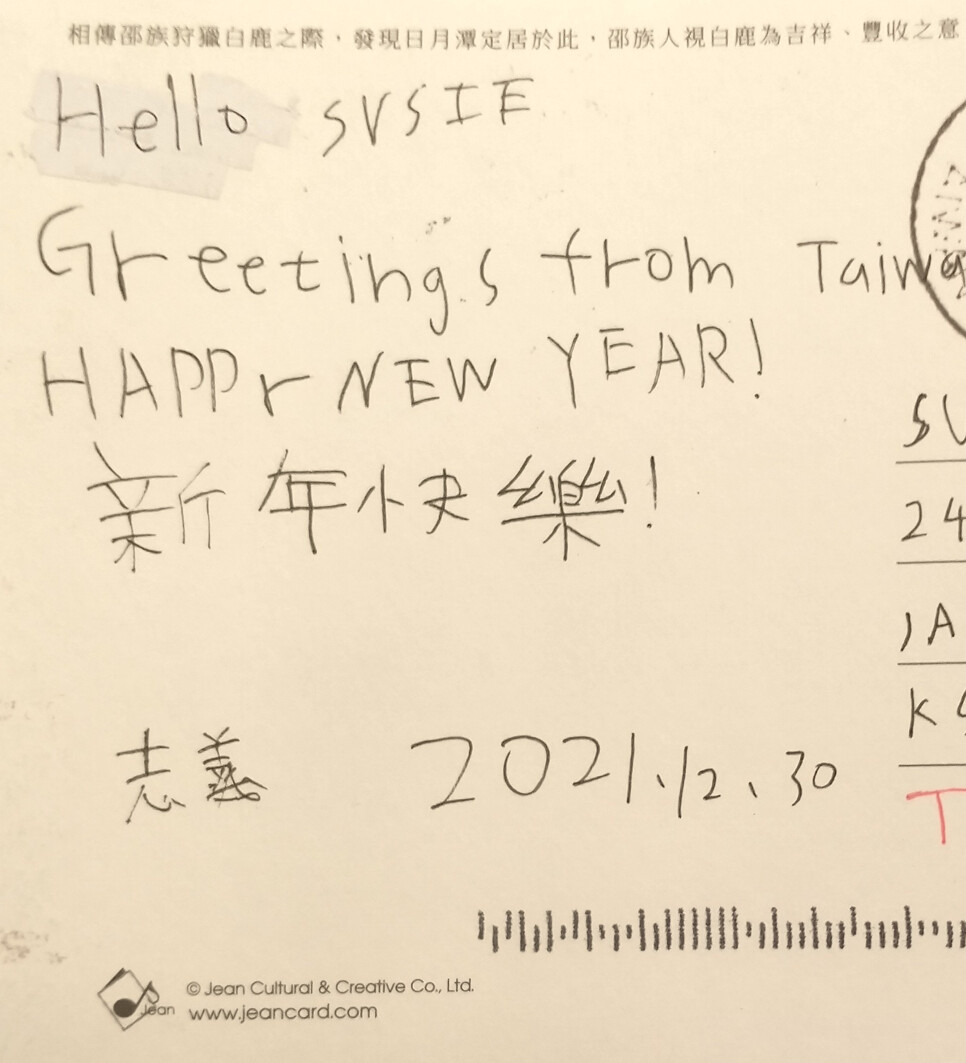 相傳邵族狩獵白鹿之際，發現日月潭定居於此，邵族人視白鹿為吉祥、豐收之意
Hello SVSIE
Greetings from Taiwa
HAPPY NEW YEAR!
新年快樂!
志義 2021.12.30
SU
24
JA
K
T
Jean
© Jean Cultural & Creative Co., Ltd.
www.jeancard.com